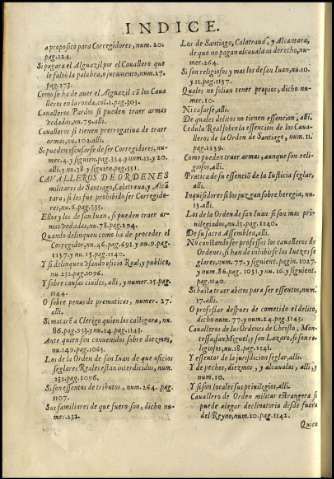 INDICE.
a proposito para Corregidores, num. 20.
pag. 124.
Si pagara el Alguazil por el Cavallero que
le faltò la palabra, o juramento, num. 27.
pag. 173.
Como se ha de aver el Alguazil cõ los Cava
lleros en la ronda,
Cavalleros Pardos si pueden traer armas
vedadas, nu. 79. alli.
Cavalleros si tienen prerrogativa de traer
armas, nu. 102. alli.
Si pueden escusarse de ser Corregidores, nu-
mer. 4. y siguien. pag. 314. y num. 13. y 20.
alli, y nu. 18. y siguien. pag. 351.
CAVALLEROS DE ORDENES
militares de Santiago, Calatrava, y Alcã
tara, si les fue prohibido ser Corregido-
res, nu. 5. pag. 351.
Estos y los de san Juan, si pueden traer ar-
mas vedadas, nu. 78. pag. 194.
Quanto delinquen como ha de proceder el
Corregidor, nu. 46. pag. 951 y nu. 9. pag.
1137. y nu. 15. pag. 1140.
Y si delinque siendo oficial Real, y publico,
nu. 232. pag. 1096.
Y sobre causas civiles, alli, y numer. 25. pag.
1144.
O sobre penas de prematicas, numer. 27.
alli.
Si matar à Clerigo, quien los castigara, nu.
86. pag. 993. y nu. 14. pag. 1143.
Ante quien son convenidos sobre diezmos,
nu. 149. pag. 1063.
Los de la Orden de san Juan de que oficios
seglares Reales estan interdictos, num.
231. pag. 1096.
Si son essentos de tributos, num. 264. pag.
1107.
Sus familiares de que fuero son, dicho nu-
mer. 232.
Los de Santiago, Calatrava, y Alcantara,
de que no pagan alcavala es derecho, nu-
mer. 264.
Si son religiosos, y mas los de san Juan, nu. 10.
y 11. pag. 1137.
Quales no pueden tener propios, dicho nu-
mer. 10.
Ni casarse, alli.
De quales delitos no tienen essencion, alli.
Cedula Real sobre la essencion de los Cavalle-
ros de la Orden de Santiago, num. 12.
pag. 1139.
Como pueden traer armas, aunque son reli-
giosos, alli.
Pratica de su essencion de la Iusticia seglar,
alli.
Inquisidores si los juzgan sobre heregia, nu-
13. alli.
Los de la Orden de san Iuan si son mas pri-
vilegiados, nu. 15. pag. 1140.
De su sacra Assemblea, alli.
No estando ser professos los cavalleros de
Ordenes, si han de inhibirse los luezes se-
glares, num. 77. y siguient. pagin. 1027.
y num 86. pag. 1031. y nu. 16. y siguient.
pag. 1140.
Si basta traer abito para ser essentos, num.
17. alli.
O professar despues de cometido el delito,
dicho num. 77. y num. 24. pag. 1143.
Cavalleros de las Ordenes de Christo, Mon-
tessa, san Miguel, y san Lazaro, si son re-
ligiosos, nu. 18. pag. 1141.
Y essentos de la jurisdicion seglar, alli.
Y de pechos, diezmos, y alcavalas, alli, y
num. 20.
Y si son locales sus privilegios, alli.
Cavallero de Orden militar estrangera si
puede alegar declinatoria desde fuera
del Reyno, num. 10. pag. 1142.
Quien